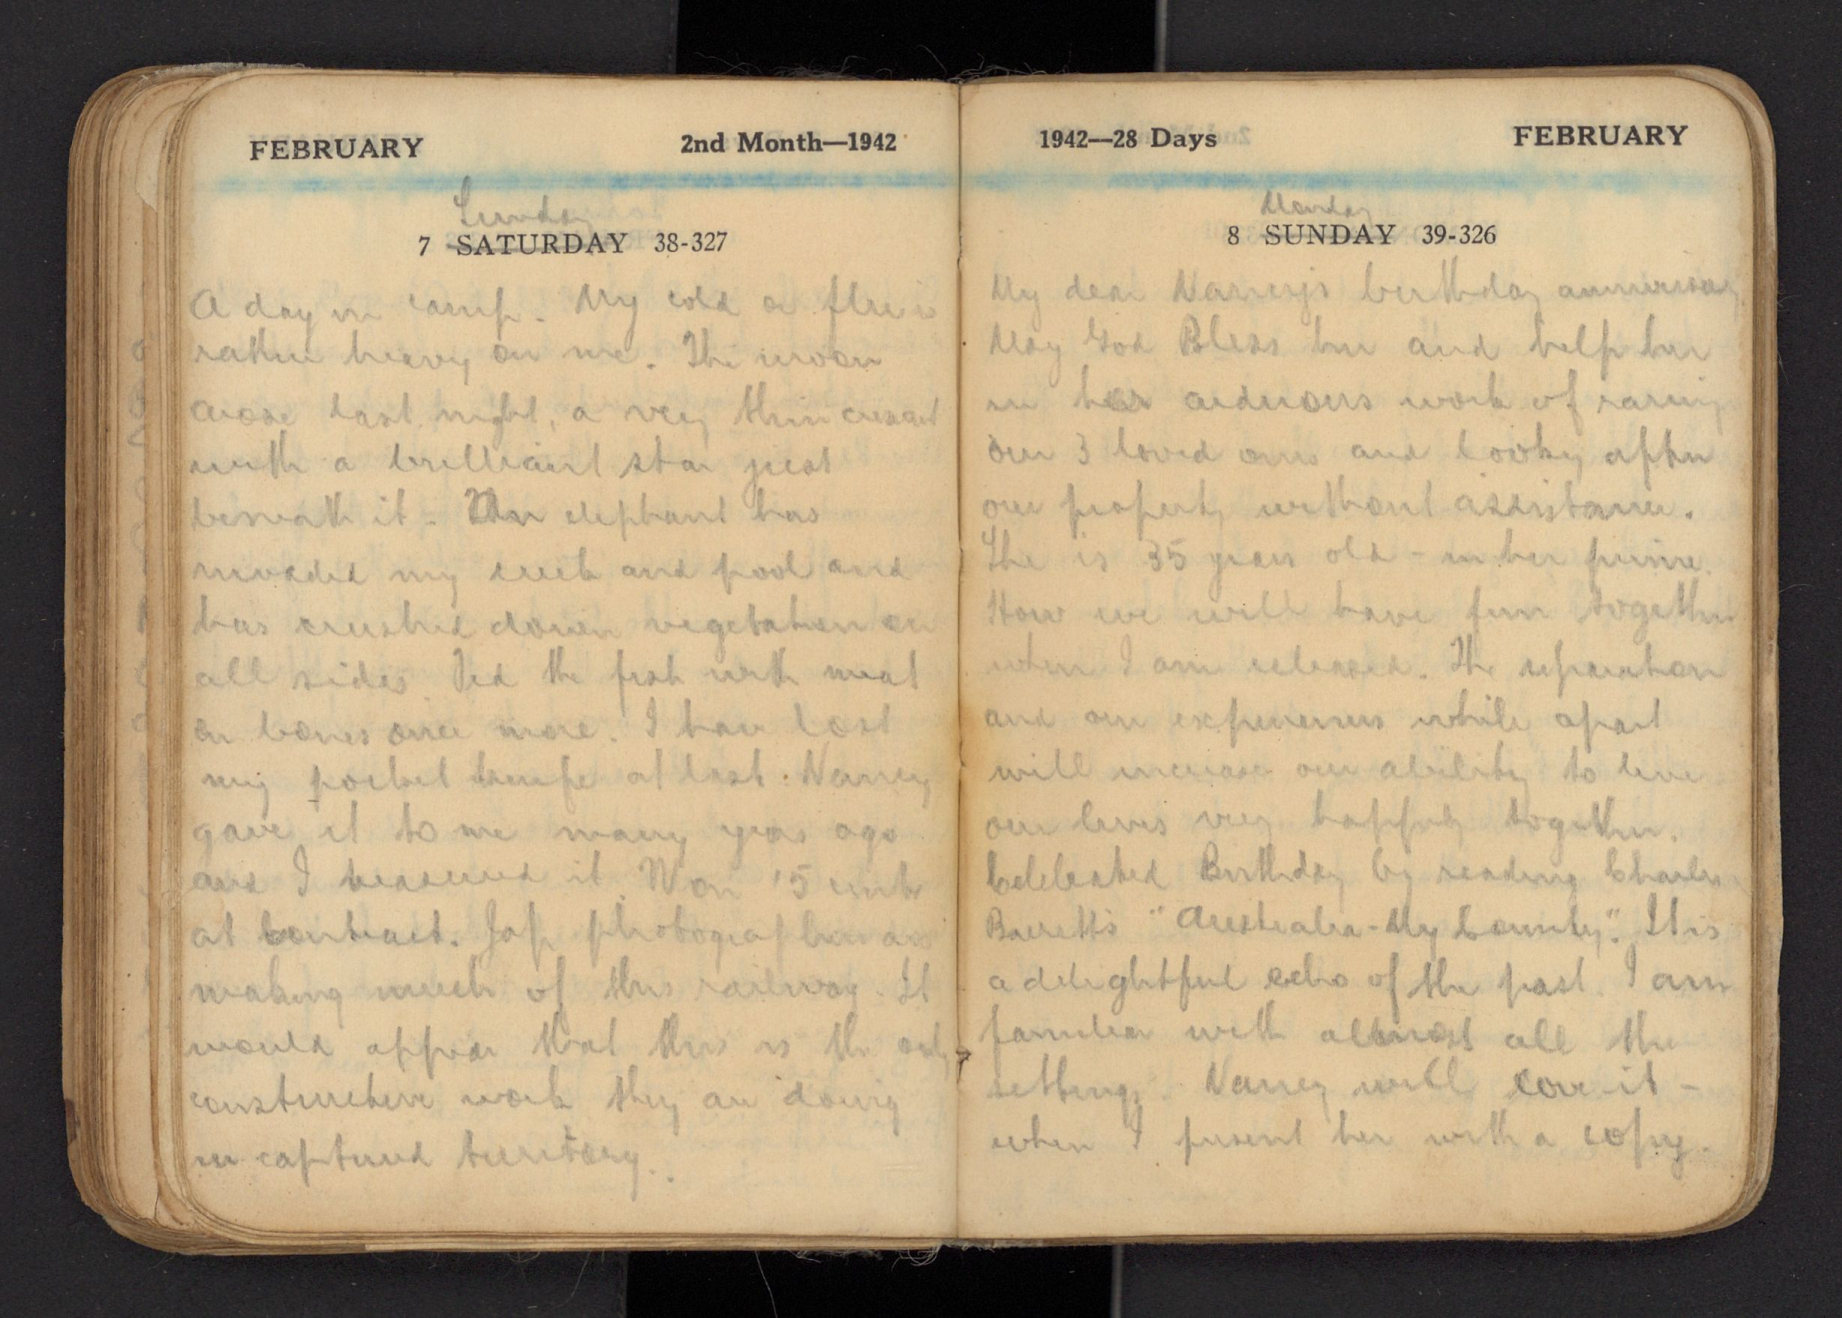 FEBRUARY 2nd Month—1942
Sunday
7 SATURDAY 38-327
A day in camp. My cold or flu is
rather heavy on me. The moon
arose last night, a very thin crescent
with a brilliant star just
beneath it. An elephant has
invaded my creek and pool and
has crushed down vegetation on
all sides. Fed the fish with meat
on bones once more. I have lost
my pocket knife at last. Nancy
gave it to me many years ago
and I treasured it. Won 15 cents
at contract. Jap photographers are
making much of this railway. It
would appear that this is the only
constructive work they are doing
in captured territory.
1942—28 Days FEBRUARY
Monday
8 SUNDAY 39-326
My dear Nancy's birthday anniversary.
May God Bless her and help her
in her arduous work of raring
our 3 loved ones and looking after
our property without assistance.
She is 35 years old - in her prime.
How we will have fun together
when I am released. The separation
and our experiences while apart
will increase our ability to live
our lives very happily together.
Celebrated Birthday by reading Charles
Barrett's "Australia - My Country." It is
a delightful echo of the past. I am
familiar with almost all the
settings. Nancy will love it -
when I present her with a copy.